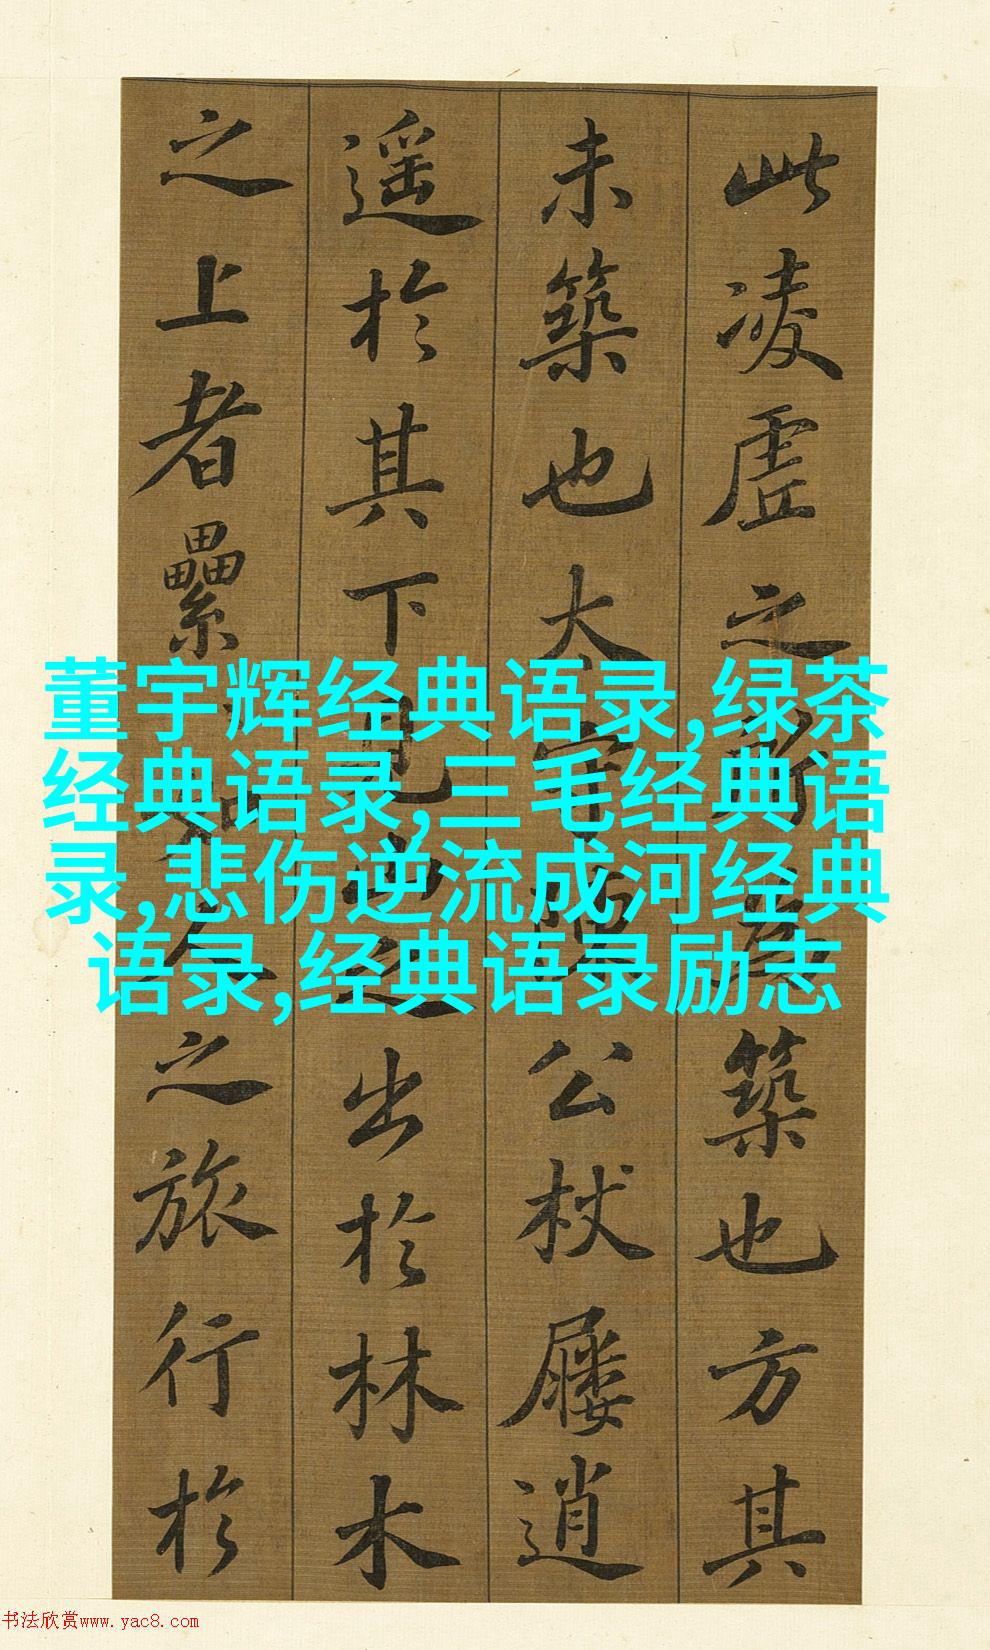 此凌虛之所爲築也方其
未築也太守陳公杖屨逍
遥於其下見山之出於林木
之上者纍纍如人之旅行於
董宇辉经典语录,绿茶
经典语录,三毛经典语
录,悲伤逆流成河经典
语录,经典语录励志
书法欣赏www.yac8.com